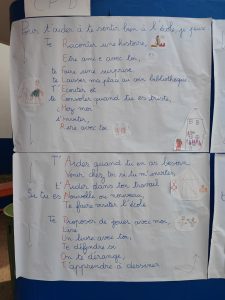 CPD
Pour t'aider à te sentir bien à l'école, je peux
Te Raconter une histoire,
Etre ami.e avec toi,
te Faire une surprise
te Laisser ma place au coin bibliothèque,
T'Ecouter et
te Consoler quand tu es triste,
chez moi
t'inviter,
Rire avec toi.
T'Aider quand tu en as besoin
Venir chez toi si tu m'invites,
t'Aider dans ton travail
Si tu es Nouvelle ou nouveau,
Te faire visiter l'école
Te Proposer de jouer avec moi,
Lire
Un livre avec toi,
Te défendre si
On te dérange,
T'apprendre à dessiner